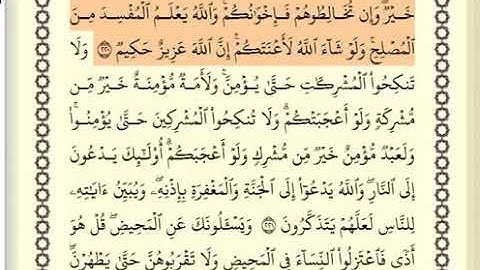 خَيْرٌ ۖ وَإِن تُخَالِطُوهُمْ فَإِخْوَٰنُكُمْ ۚ وَٱللَّهُ يَعْلَمُ ٱلْمُفْسِدَ مِنَ
ٱلْمُصْلِحِ ۚ وَلَوْ شَآءَ ٱللَّهُ لَأَعْنَتَكُمْ ۚ إِنَّ ٱللَّهَ عَزِيزٌ حَكِيمٌ ٢٢٠ وَلَا
تَنكِحُوا۟ ٱلْمُشْرِكَٰتِ حَتَّىٰ يُؤْمِنَّ ۚ وَلَأَمَةٌ مُّؤْمِنَةٌ خَيْرٌ مِّن
مُّشْرِكَةٍ وَلَوْ أَعْجَبَتْكُمْ ۗ وَلَا تُنكِحُوا۟ ٱلْمُشْرِكِينَ حَتَّىٰ يُؤْمِنُوا۟ ۚ
وَلَعَبْدٌ مُّؤْمِنٌ خَيْرٌ مِّن مُّشْرِكٍ وَلَوْ أَعْجَبَكُمْ ۗ أُو۟لَٰٓئِكَ يَدْعُونَ
إِلَى ٱلنَّارِ ۖ وَٱللَّهُ يَدْعُوٓا۟ إِلَى ٱلْجَنَّةِ وَٱلْمَغْفِرَةِ بِإِذْنِهِۦ ۖ وَيُبَيِّنُ ءَايَٰتِهِۦ
لِلنَّاسِ لَعَلَّهُمْ يَتَذَكَّرُونَ ٢٢١ وَيَسْـَٔلُونَكَ عَنِ ٱلْمَحِيضِ ۖ قُلْ هُوَ
أَذًى فَٱعْتَزِلُوا۟ ٱلنِّسَآءَ فِى ٱلْمَحِيضِ ۖ وَلَا تَقْرَبُوهُنَّ حَتَّىٰ يَطْهُرْنَ ۖ